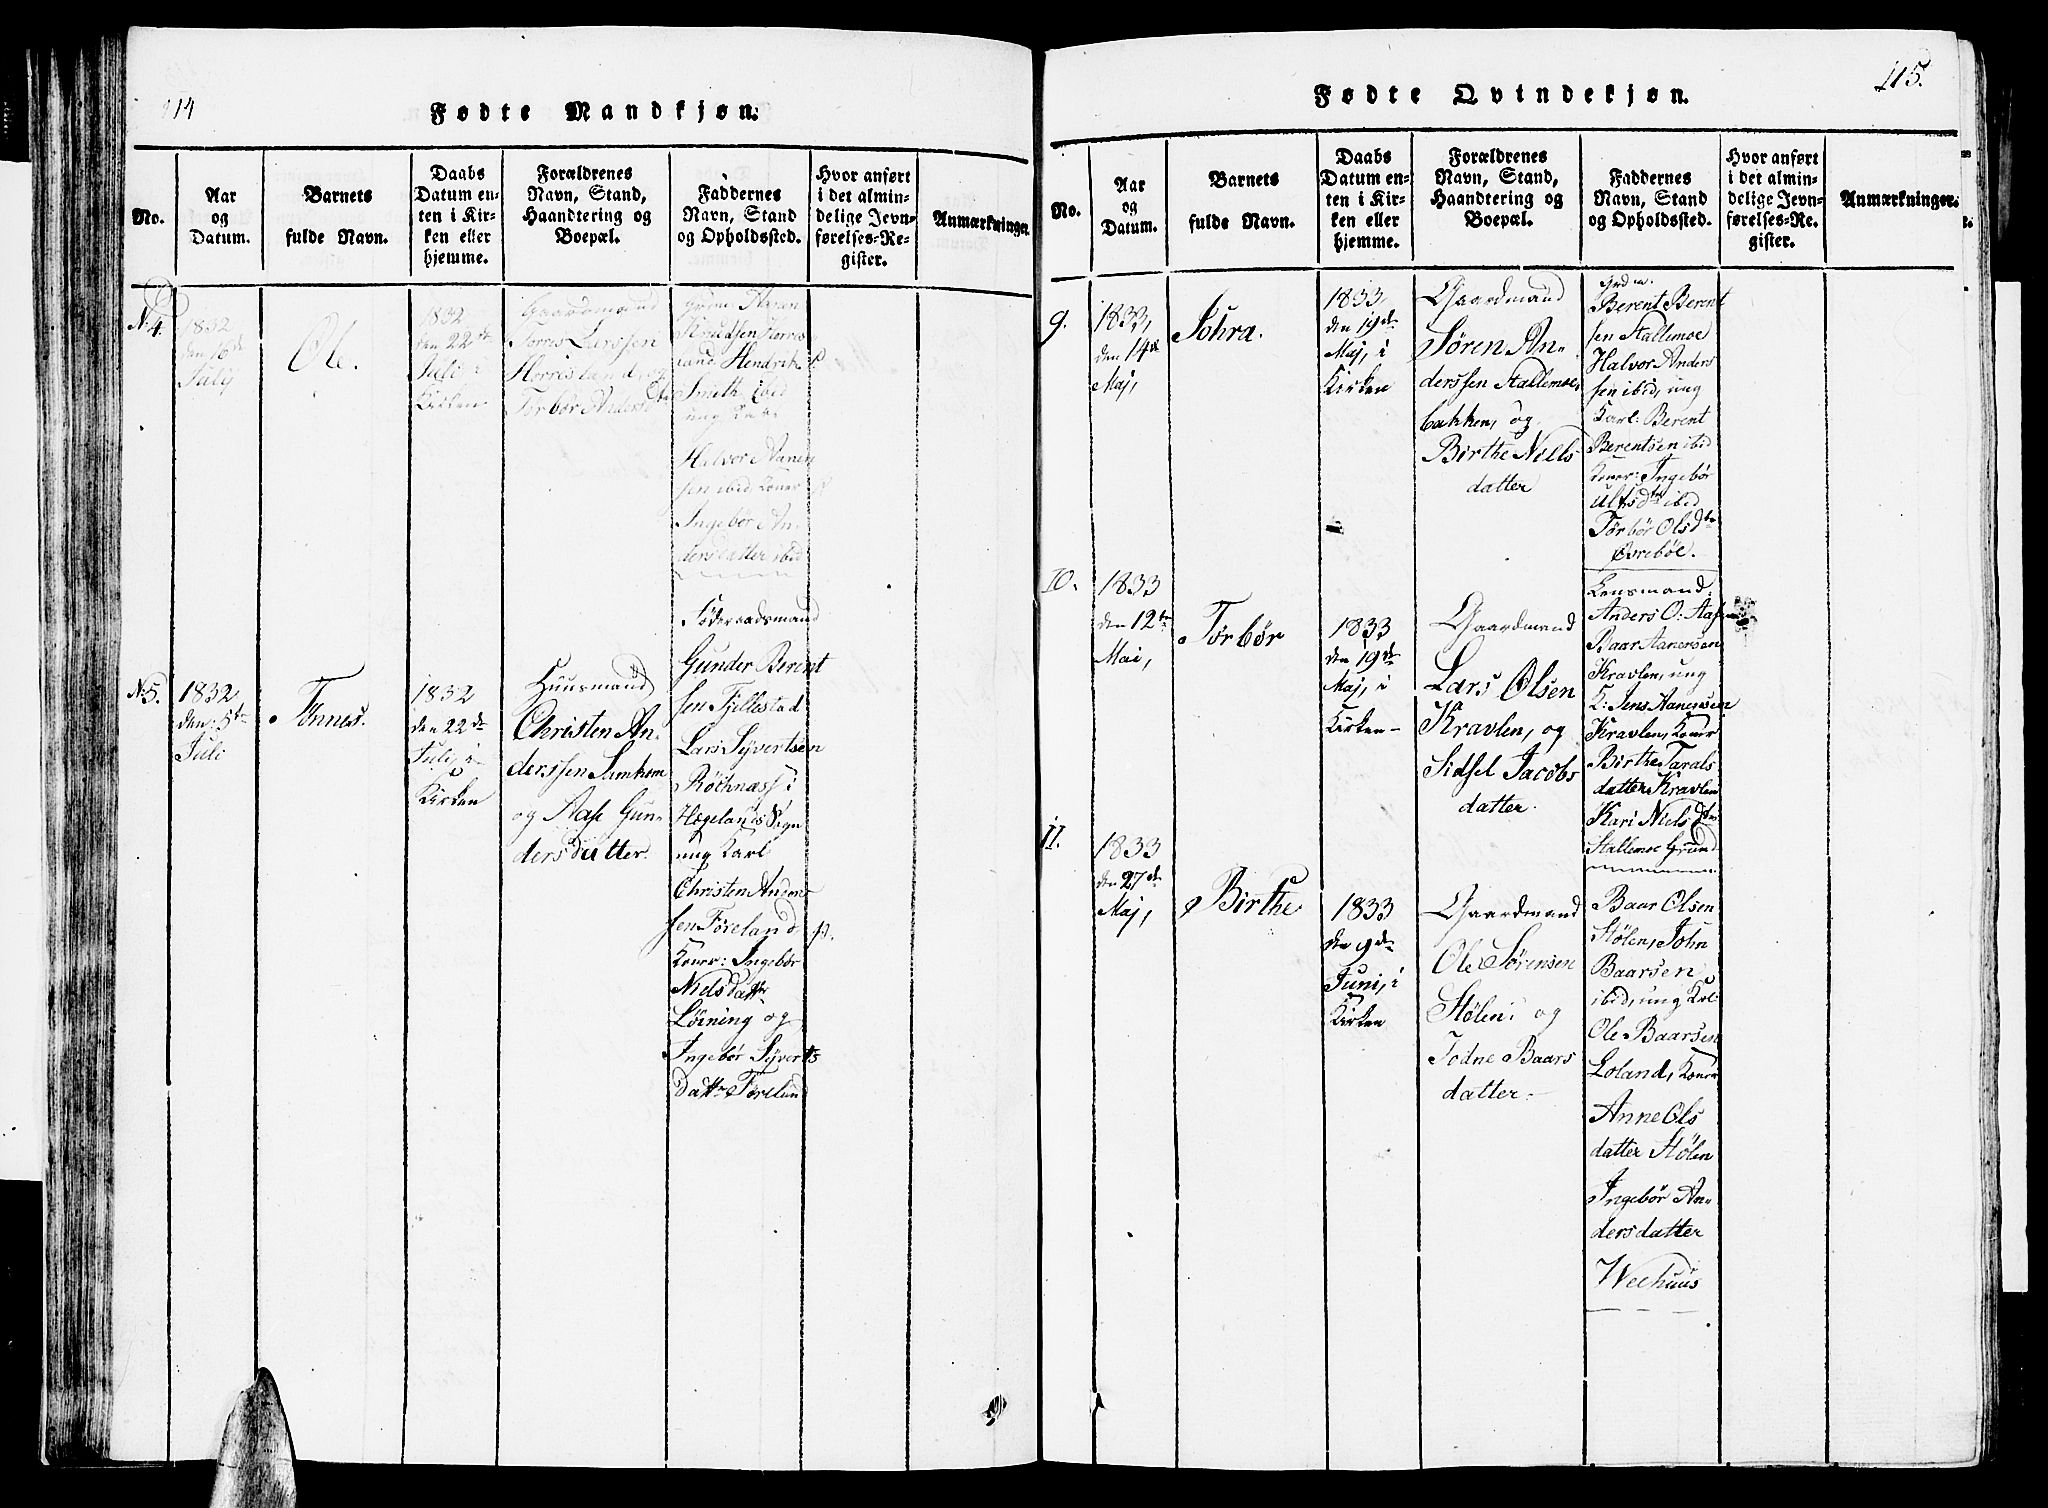 114
Fødte Mandkjøn.
No.
Aar
og
Datum.
Barnets
fulde Navn.
Daabs
Datum en-
ten i Kir-
ken eller
hjemme.
Forældrenes
Navn, Stand,
Haandtering og
Boepæl.
Faddernes
Navn, Stand
og Opholdssted.
Hvor anført
i det almin-
delige Jevn-
førelses-Re-
gister.
Anmærkninger.
N. 4.
1832
den 16de
Julij
Ole.
1832
den 22de
Juli i
Kirken
Gaardmand
Torris Larssen
Horrisland, og
Torbør Andersdtr
Grdm. Aanen
Knudsen Horris
land, Hendrik
Smith ibid
ung Karl
Halvor Aanen
sen ibid, Koner
Ingebør An-
dersdatter ibid
N. 5.
1832
den 5te
Juli
Tønnes.
1832
den 22de
Juli, i
Kirken
Huusmand
Christen An-
derssen Samkom
og Aase Gun-
dersdatter.
Føderaadsmand
Gunder Berent
sen Fjellestad
Lars Syvertsen
Røthnass i
Hægelands Sogn
ung Karl
Christen Anders
sen Føreland
Koner: Ingebør
Nielsdattr
Løining og
Ingebør Syverts
dattr Føreland
115.
Fødte Qvindekjøn.
No.
Aar
og
Datum.
Barnets
fulde Navn.
Daabs
Datum en-
ten i Kir-
ken eller
hjemme.
Forældrenes
Navn, Stand,
Haandtering og
Boepæl.
Faddernes
Navn, Stand
og Opholdssted.
Hvor anført
i det almin-
delige Jevn-
førelses-Re-
gister.
Anmærkninger.
9.
1833,
den 14de
Maj,
Sohra.
1833
den 19de
Maj, i
Kirken
Gaardmand
Søren An-
derssen Stallemoe,
bakken, og
Birthe Niels
datter
Grdm.
Berent Berent
sen Stallemoe
Halvor Anders
sen ibid, ung
Karl: Berent
Berentsen ibid
Koner: Ingebør
Ulfsdtr ibid
Torbør Olsdtr
Øvrebøe.
10.
1833
den 12te
Mai,
Torbør
1833
den 19de
Maj, i
Kirken
Gaardmand
Lars Olsen
Kravlen, og
Sidsel Jacobs
datter.
Lensmand
Anders O: Aas
Baar Aanensen
Kravlen, ung
K: Jens Aanensen
Kravlen, Koner
Birthe Tarals
datter Kravlen
Kari Nielsdtr
Stallemoe Grund
11.
1833
den 27de
Maj,
Birthe
1833
den 9de
Juni, i
Kirken
Gaardmand
Ole Sørensen
Stølen, og
Jodne Baars
datter.
Baar Olsen
Stølen, John
Baarsen
ibid, ung Krl:
Ole Baarsen
Loland, Koner
Anne Ols
datter Stølen
Ingebør An-
dersdatter
Weehuus